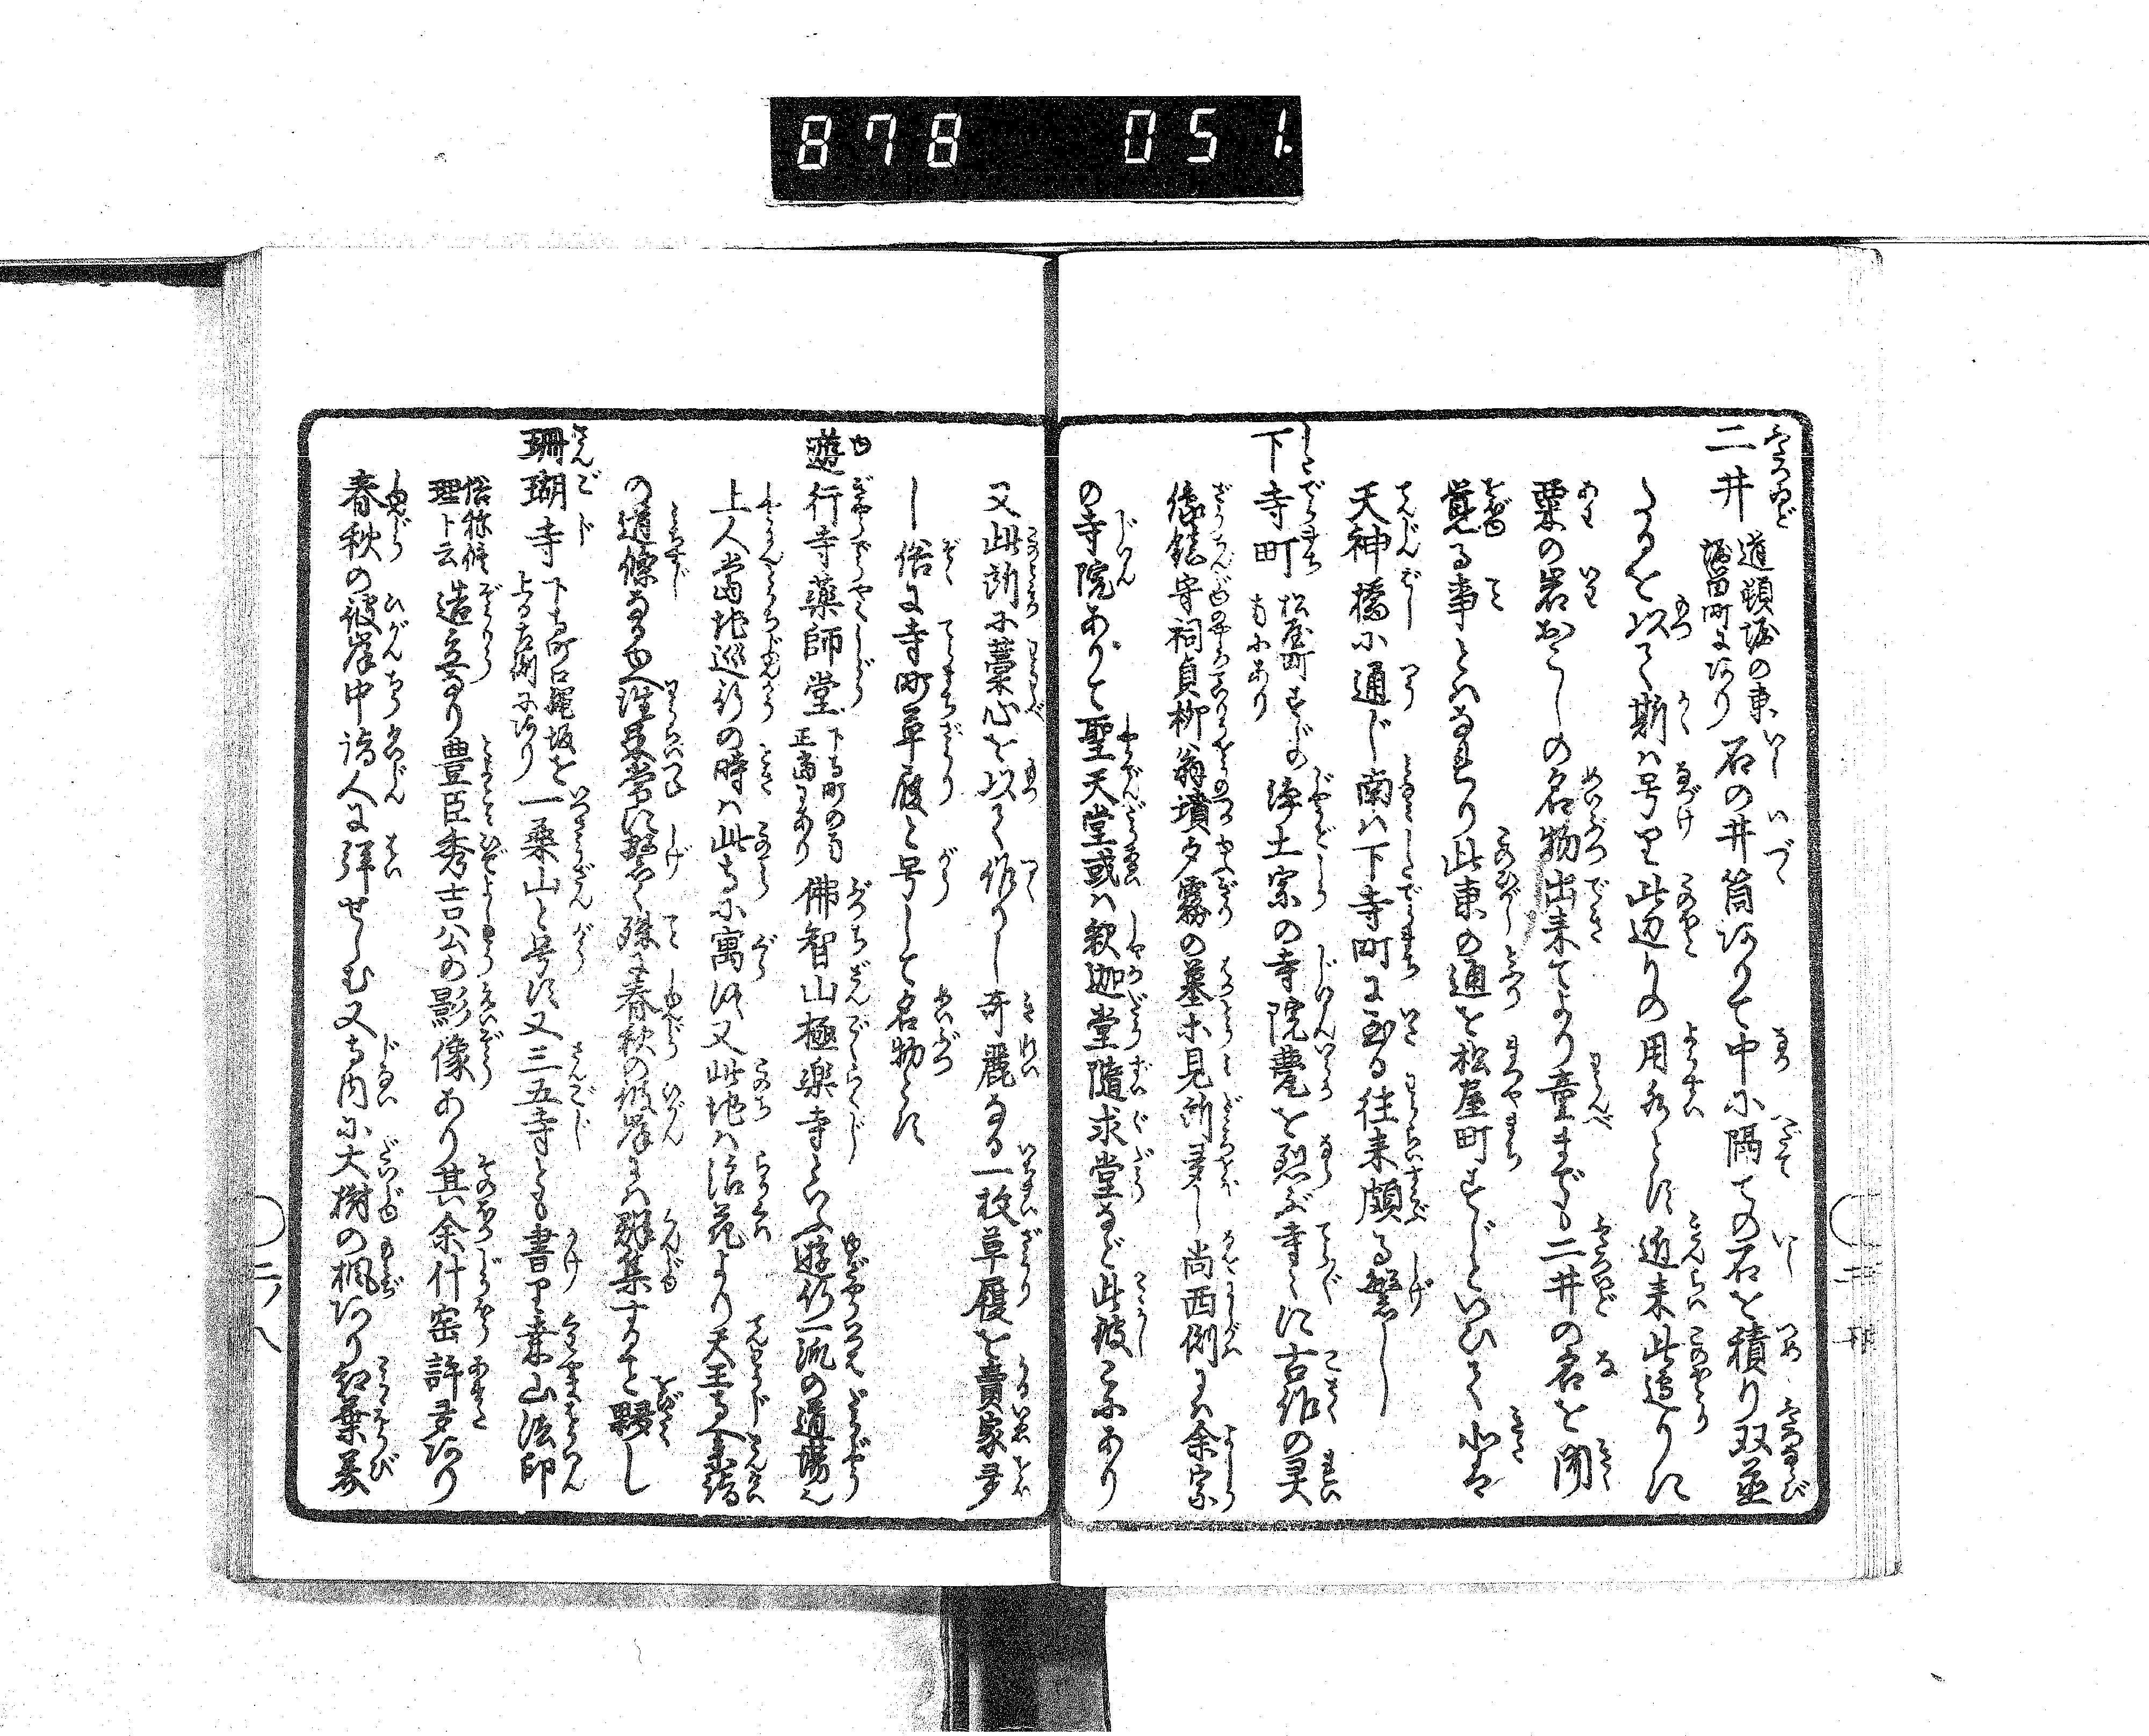 878 051.
二井 道頓堀の東 堀留町にあり 石の井筒ありて中に隔ての石を積り双並
たるを以て斯は号り此辺りの用水とす近来此辺りに
粟の岩おこしの名物出来てより童までも二井の名を聞
覚る事とはなれり此東の通を松屋町すじといひて北は
天神橋に通じ南は下寺町に至る往来頗る繁し
下寺町 松屋町すじの 浄土宗の寺院甍を烈ぶ寺々に古作の霊
像 祠貞柳翁墳夕霧の墓等見所多し尚西側には余宗
の寺院ありて聖天堂或は釈迦堂随求堂など此彼にあり
又此所に藁心を以て作りし奇麗なる一枚草履を賣家多
し俗に寺町草履と号して名物とす
遊行寺薬師堂 下寺町の南 正面にあり 佛智山極楽寺といふ遊行一流の道場也
上人当地巡行の時は此寺に寓す又此地は浪花より天王寺へ参詣
の道條なる也人往来常に繁く殊に春秋の彼岸には群集すること夥し
珊瑚寺 下寺町口縄坂を 上る右側にあり 一乗山と号す又三五寺とも書り 山法印
造立なり豊臣秀吉公の影像あり其余什宝許多あり
春秋の彼岸中詣人に拝せしむ又寺内に大樹の楓あり紅葉最
二ノ八